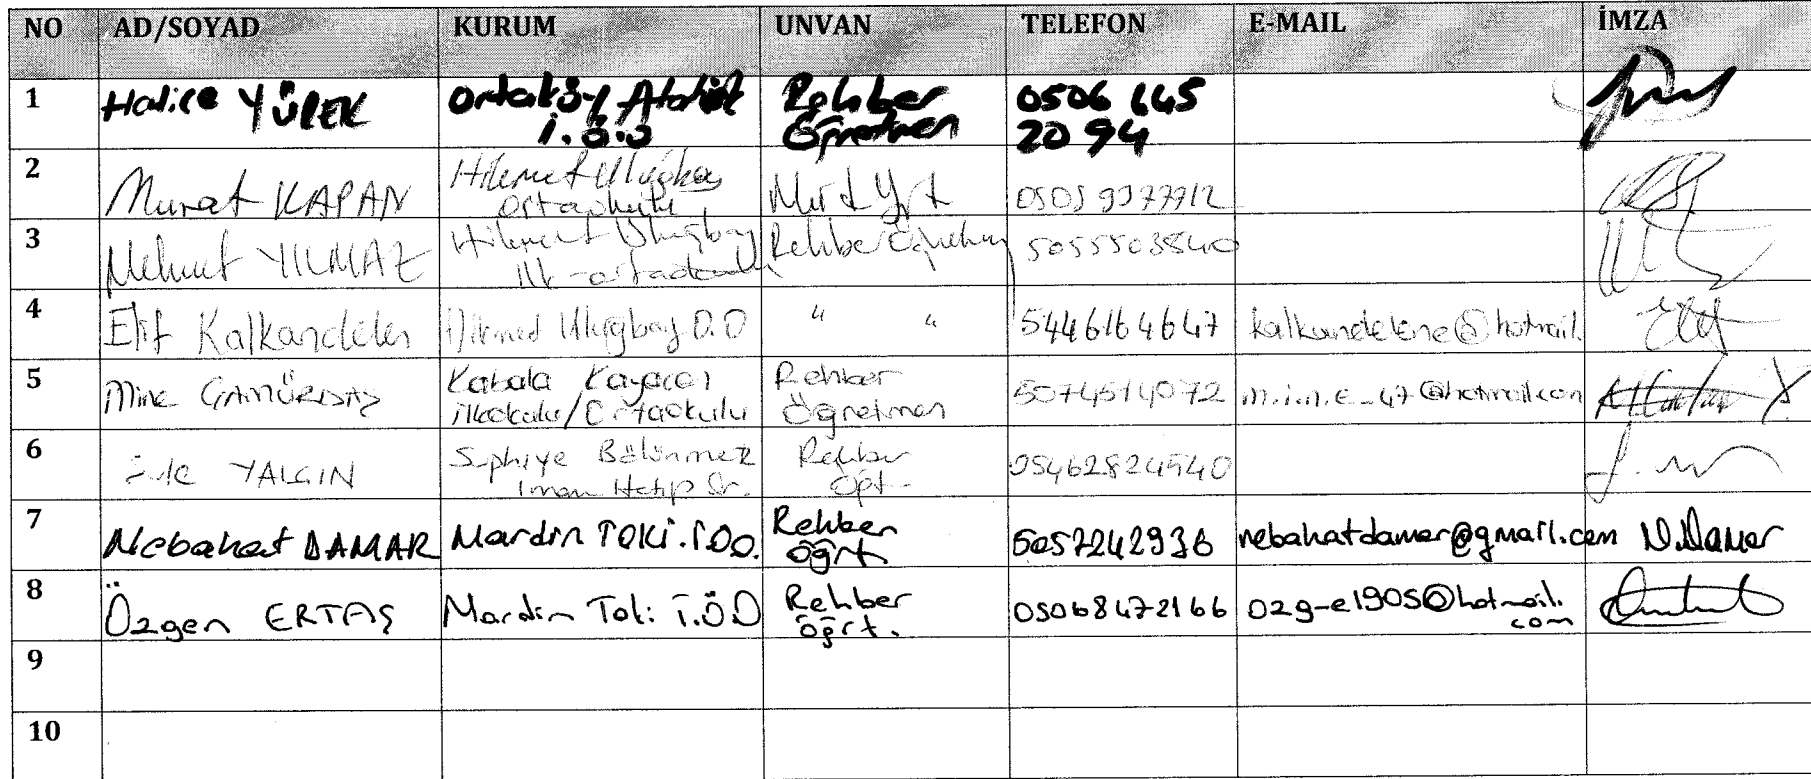 NO AD/SOYAD KURUM UNVAN TELEFON E-MAIL İMZA
1 Hatice YÜREK Ortaköy Atatürk İ.Ö.O Rehber Öğretmen 0506 645 20 94
2 Murat KAPAN Hikmet Uluğbay Ortaokulu Müd Yrd 0505 9377912
3 Mehmet YILMAZ Hikmet Uluğbay İlk-ortaokulu Rehber Öğretmen 5055503840
4 Elif Kalkandelen Hikmed Uluğbay O.O " " 5446164647 kalkandelene@hotmail.
5 Mine Kabala Kayacan İlkokulu/Ortaokulu Rehber Öğretmen 5074514072 m.i.n.e_47@hotmail.com
6 YALÇIN Suphiye Bölünmez İmam Hatip Or. Rehber Öğt. 05462824540
7 Nebahat DAMAR Mardin TOKİ.İ.Ö.O. Rehber öğrt 5057242936 nebahatdamar@gmail.com N.Damar
8 Özgen ERTAŞ Mardin Toki İ.Ö.O Rehber öğrt. 05068472166 ozg-e1905@hotmail.com
9
10